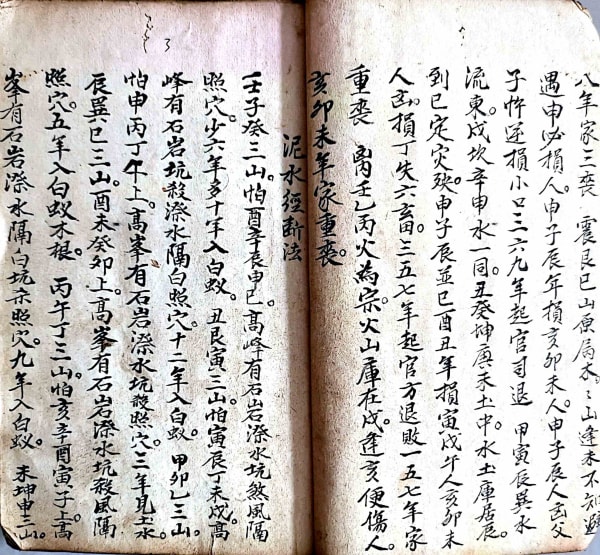 八年家三喪 震艮巳山原属木。木山逢未不知避
遇申必損人。申子辰年損亥卯未人。申子辰人凶父
子忤逆損小口三六九年起官司退 甲寅辰巽水
流東。戌坎辛申水一同。丑癸坤庚未土中。水土庫居辰。
到巳定灾殃。申子辰並巳酉丑年損寅戌午人亥卯未
人凶。損丁失六畜。三五七年起官方退敗一五七年家
重喪 离壬乙丙火為宗。火山庫在戌。逢亥便傷人。
亥卯未年家重喪。
泥水經断法
壬子癸三山。怕酉辛辰申巳。高峰有石岩潦水坑煞風隔
照穴。少六年多十年入白蚁。丑艮寅三山。怕寅辰丁未戌高
峰有石岩坑殺潦水隔白照穴。十二年入白蚁。 甲卯乙三山
怕申丙丁午上。高峯有石岩潦水坑殺照穴。三年見土水。
辰巽巳三山。酉未癸卯上。高峯有石岩潦水坑殺風隔
照穴。五年入白蚁木根。 丙午丁三山。怕亥辛酉寅子上高
峯有石岩潦水隔白坑朵照穴。九年入白蚁 未坤申三山。